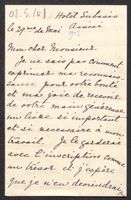 02.5.10
Hotel Subasio
le 29me de Mai Assise
1902
Mon cher Monsieur
Je ne sais pas comment
exprimer ma reconnais-
sance pour votre bonté
et ma joie de recevoir
de votre main généreuse
un livre si important
et si necessaire à mon
travail. Je le garderai
avec l'inscription comme
un trésor et j'espère
que je n'en deviendrai